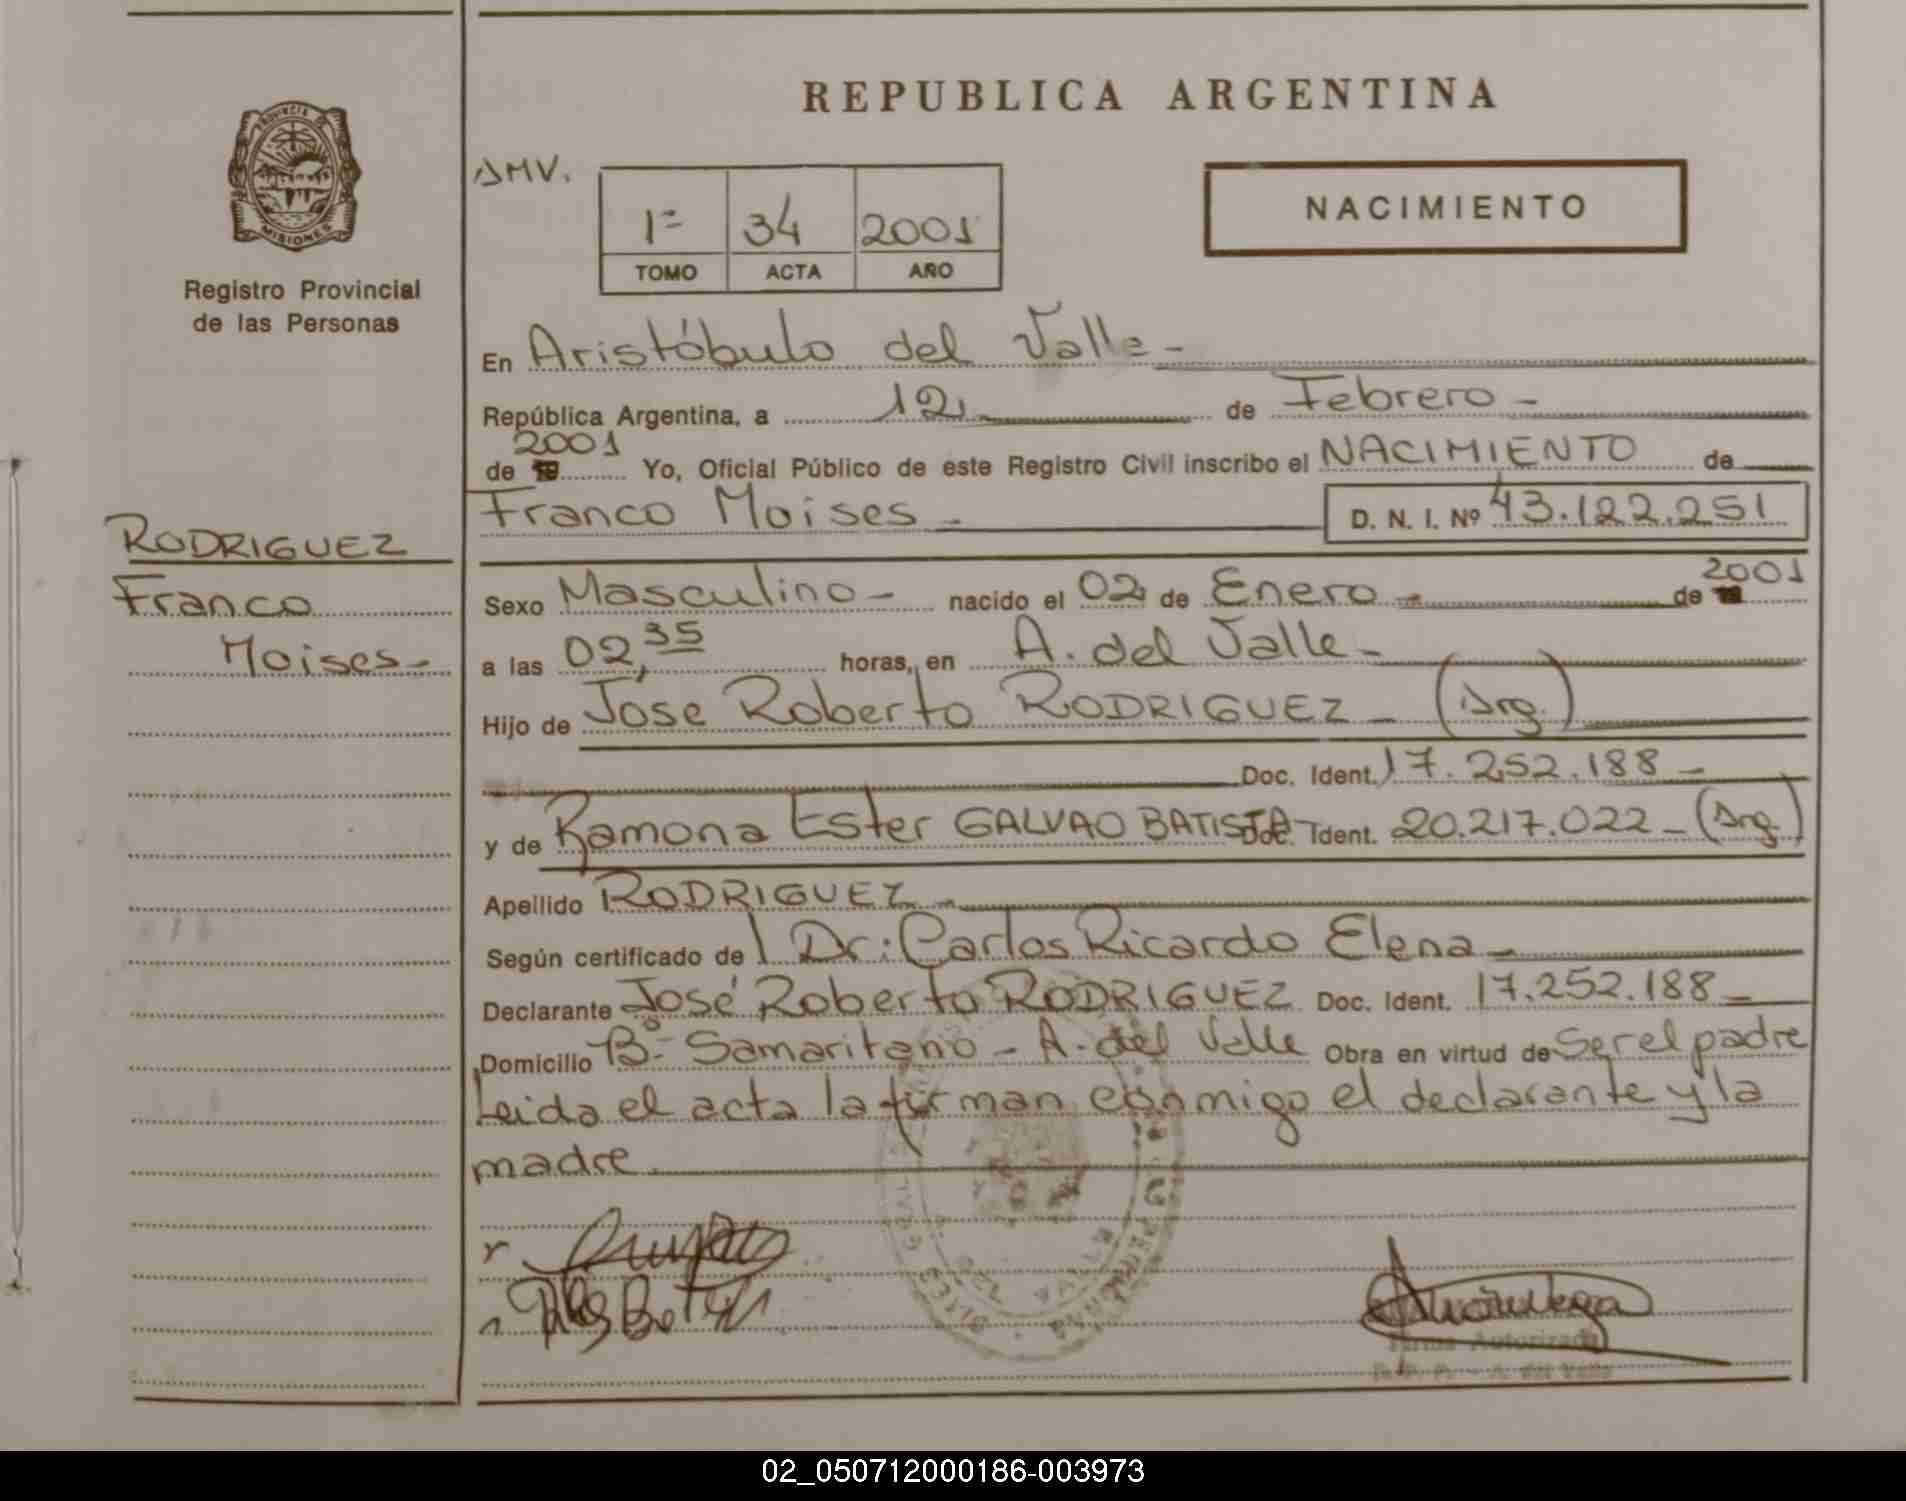 REPUBLICA ARGENTINA
PROVINCIA DE
MISIONES
Registro Provincial
de las Personas
AMV.
1º 34 2001
TOMO ACTA AÑO
NACIMIENTO
En Aristóbulo del Valle -
República Argentina, a 12 - de Febrero -
2001
de 19 Yo, Oficial Público de este Registro Civil inscribo el NACIMIENTO de
Franco Moises - D. N. I. Nº 43.122.251
RODRIGUEZ
Franco
Moises -
Sexo Masculino - nacido el 02 de Enero - de 19 2001
a las 02,35 horas, en A. del Valle -
Hijo de José Roberto RODRIGUEZ - (Arg.)
Doc. Ident. 17.252.188 -
y de Ramona Ester GALVAO BATISTA - Doc. Ident. 20.217.022 - (Arg.)
Apellido RODRIGUEZ -
Según certificado de l Dr: Carlos Ricardo Elena -
Declarante José Roberto RODRIGUEZ Doc. Ident. 17.252.188 -
Domicilio Bº - Samaritano - A. del Valle Obra en virtud de Ser el padre
Leida el acta la firman conmigo el declarante y la
madre.
Firma Autorizada
R. P. P. - A. del Valle
02_050712000186-003973